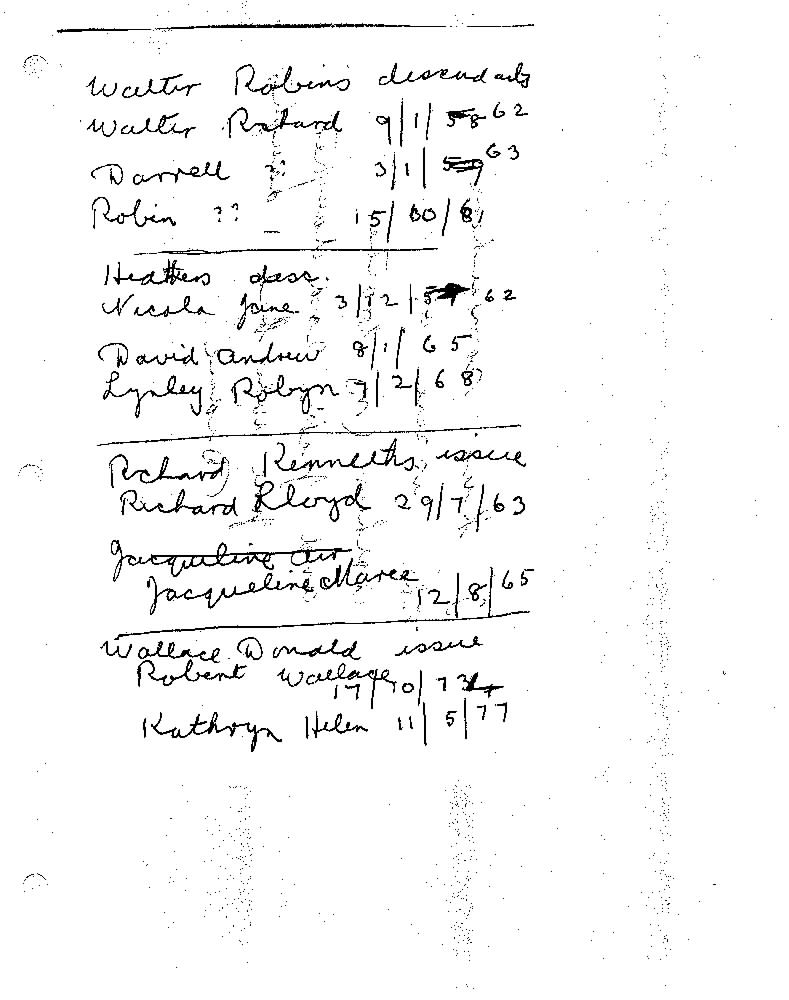 Walter Robins descendants
Walter Richard 9/1/58 62
Darrell ?? 3/1/59 63
Robin ?? 15/10/6
Heathers desc.
Nicola Jane 3/12/59 62
David Andrew 8/1/65
Lynley Robyn 7/2/68
Richard Kenneths issue
Richard Lloyd 29/7/63
Jacqueline Air
Jacqueline Maree
12/8/65
Wallace Donald issue
Robert Wallace
17/10/73
Kathryn Helen 11/5/77